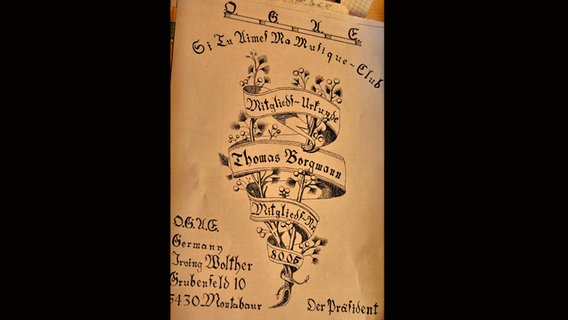 O G A E
Si Tu Aimes Ma Musique-Club
Mitglieds-Urkunde
Thomas Borgmann
Mitglieds-Nr.
8.0.05
O.G.A.E.
Germany
Irving Wolther
Grubenfeld 10
5430 Montabaur
Der Präsident